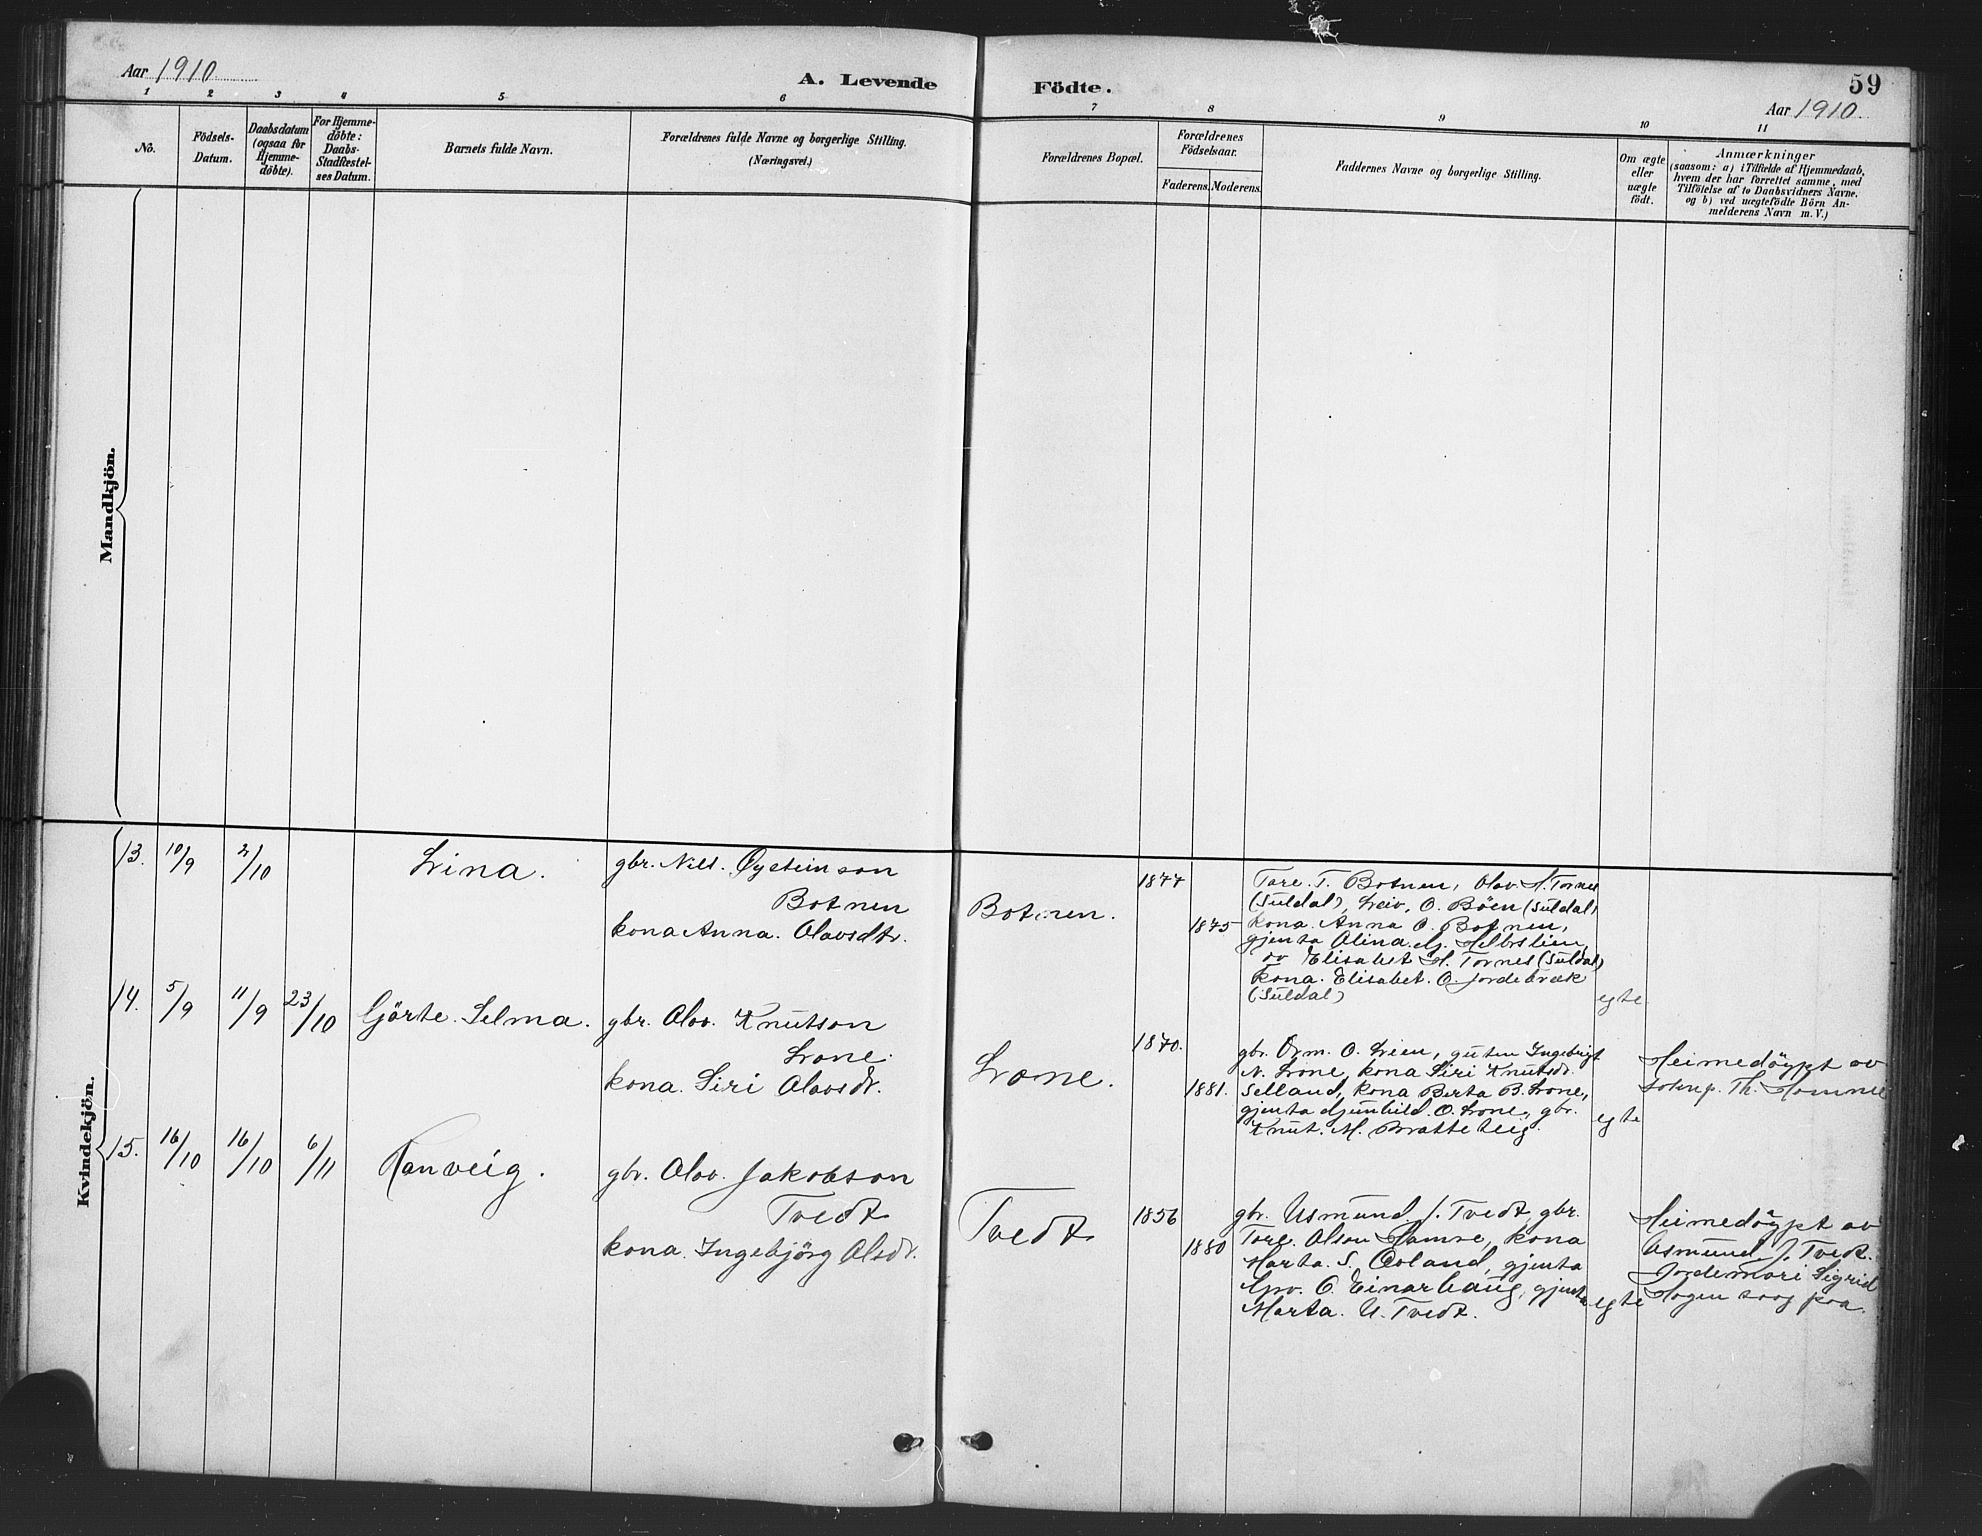 Aar 1910
A. Levende
Födte.
59
Aar 1910
1 2 3 4 5 6 7 8 9 10 11
No.
Födsels-
Datum.
Daabsdatum
(ogsaa for
Hjemme-
döbte).
For Hjemme-
döbte:
Daabs-
Stadfæstel-
ses Datum.
Barnets fulde Navn.
Forældrenes fulde Navne og borgerlige Stilling.
(Næringsvei.)
Forældrenes Bopæl.
Forældrenes
Födselsaar.
Faderens. Moderens.
Faddernes Navne og borgerlige Stilling.
Om ægte
eller
uægte
födt.
Anmærkninger
(saasom: a) i Tilfælde af Hjemmedaab,
hvem der har forrettet samme, med
Tilföielse af to Daabsvidners Navne.
og b) ved uægtefödte Börn An-
melderens Navn m. V.)
Mandkjön.
Kvindekjön.
13. 10/9 2/10
Lina.
gbr. Nils. Øysteinson
Botnen
kona Anna. Olavsdtr.
Botnen.
1877
1875
Tore. T. Botnen, Olav. H. Tornes
(Suldal), Leiv. O. Böen (Suldal)
kona. Anna O. Botnen,
gjenta Olina
Elisabet H. Tornes (Suldal)
kona. Elisabet. O. Jordebræk
(Suldal)
egte
14. 5/9 11/9 23/10
Gjörte. Selma.
gbr. Olav. Knutson
Lone.
kona. Siri Olavsdr.
Lone.
1870.
1881.
gbr. Orm. O. Lien, guten Ingebrigt
N. Lone, kona Siri Knutsdr.
Selland, kona Berta B. Lone,
gjenta Gunhild. O. Lone, gbr.
Knut. M. Bratteteig.
egte
Heimedöypt av
Th. Hamre
15. 16/10 16/10 6/11
Ranveig.
gbr. Olav. Jakobson
Tvedt
kona. Ingebjörg Olsdr.
Tvedt
1856
1880
gbr. Asmund J. Tvedt gbr.
Tore. Olson Hamre, kona
Marta. S. gjenta
O. Einarhaug, gjenta
Marta. A. Tvedt.
egte
Heimedöypt av
Asmund J. Tvedt.
Jordemori Sigrid
Hogen saag paa.